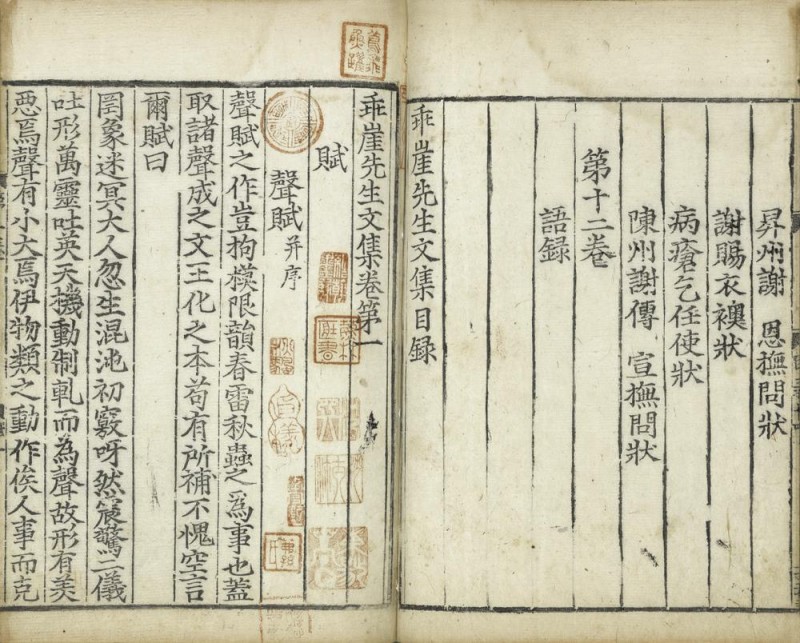 昇州謝 恩撫問狀
謝賜衣襖狀
病瘡乞任使狀
陳州謝傳 宣撫問狀
第十二卷
語録
乖崖先生文集目録
乖崖先生文集卷第一
賦
聲賦并序
聲賦之作豈拘模限韻春雷秋蟲之爲事也蓋
取諸聲成之文王化之本苟有所補不愧空言
爾賦曰
罔象迷冥大人忽生混沌初竅呀然震驚二儀
吐形萬靈吐英天機動制軋而為聲故形有美
惡焉聲有小大焉伊物類之動作俟人事而克